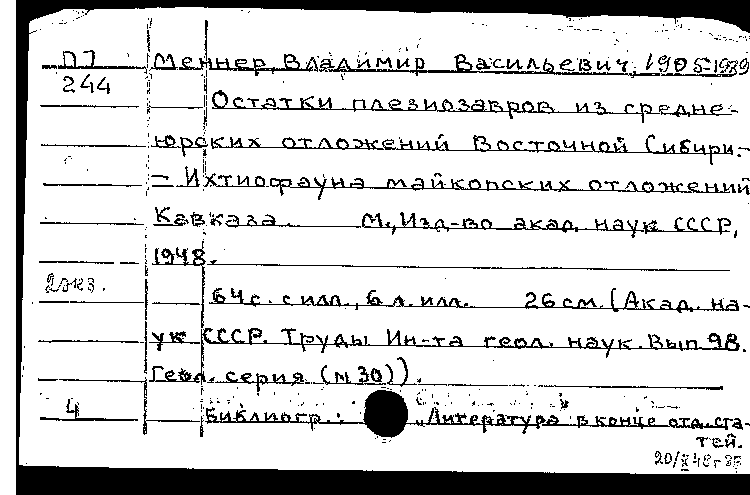 П7
244
Меннер, Владимир Васильевич, 1905-1989
Остатки плезиозавров из средне-
юрских отложений Восточной Сибири.-
- Ихтиофауна майкопских отложений
Кавказа. М., Изд-во акад. наук СССР,
1948.
2экз.
64 с. с илл., 6 л. илл. 26 см. (Акад. на-
ук СССР. Труды Ин-та геол. наук. Вып. 98.
Геол. серия (№ 30)).
4
Библиогр.: "Литература в конце отд. ста-
тей.
20/X 48г